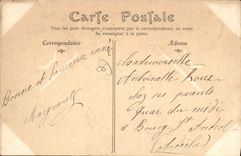 Carte Postale
Tous les pays étrangers n'acceptent pas la correspondance au recto.
Se renseigner à la poste.
Correspondance
Adresse
Bonne et heureuse année
Marguerite
Mademoiselle
Antoinette
chez ses parents
Quai du midi
à Bourg St Andéol
(Ardèche)